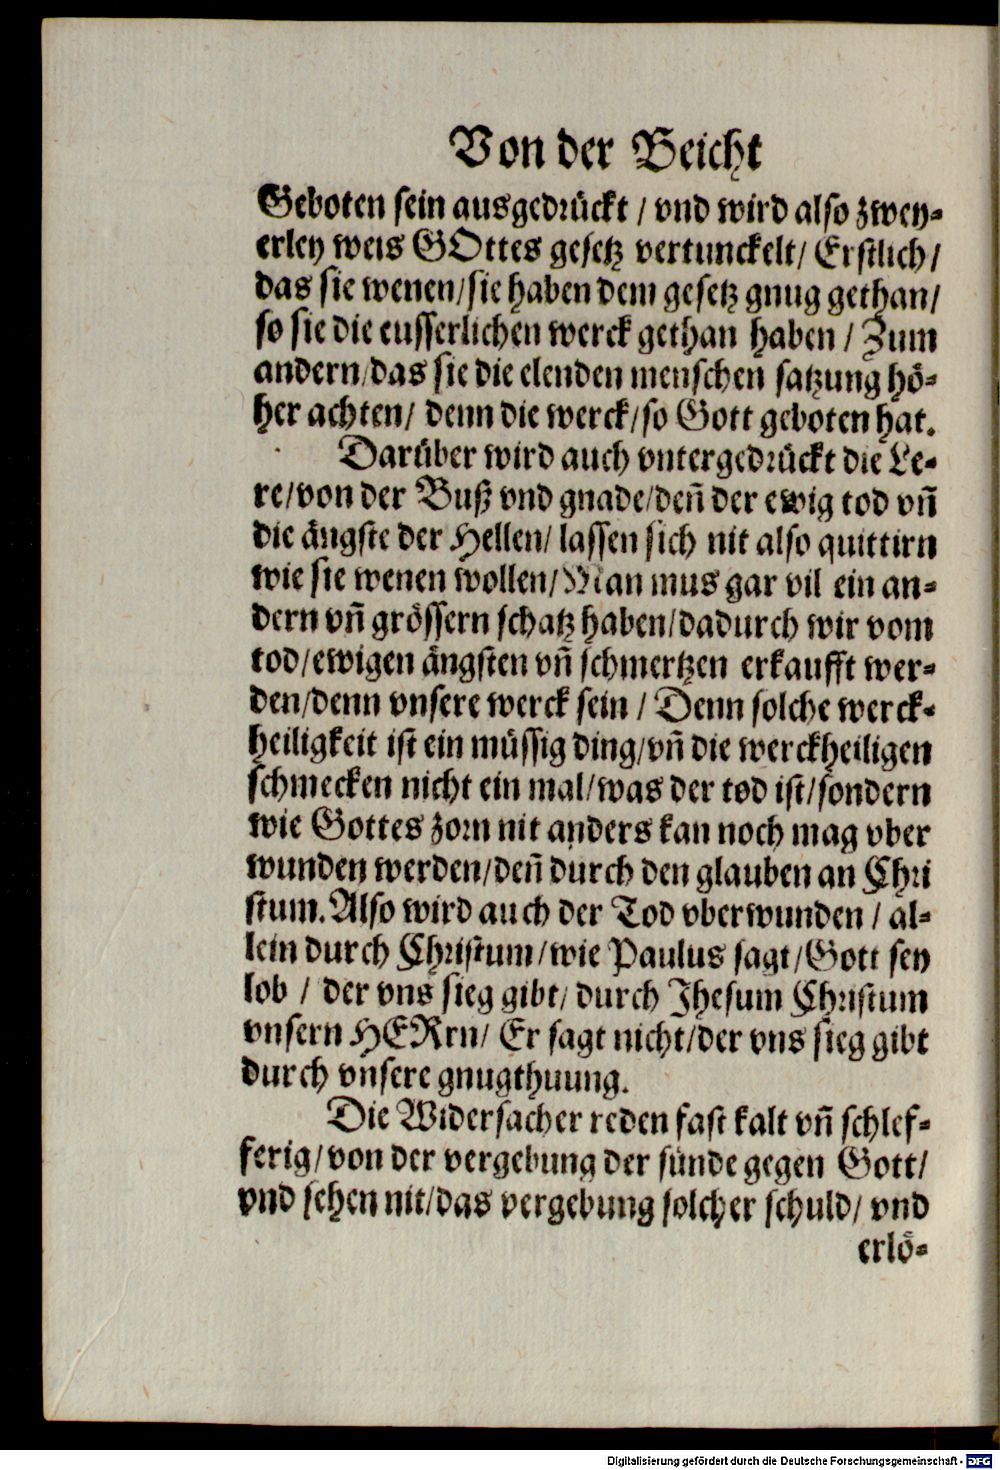 Von der Beicht
Geboten sein ausgedrückt / vnd wird also zwey-
erley weis GOttes gesetz vertunckelt/ Erstlich/
das sie wenen/sie haben dem gesetz gnug gethan/
so sie die eusserlichen werck gethan haben / Zum
andern/das sie die elenden menschen satzung hö-
her achten/ denn die werck/so Gott geboten hat.
Darüber wird auch vntergedrückt die Le-
re/von der Buß vnd gnade/deñ der ewig tod vñ
die ängste der Hellen/ lassen sich nit also quittirn
wie sie wenen wollen/Man mus gar vil ein an-
dern vñ grössern schatz haben/dadurch wir vom
tod/ewigen ängsten vñ schmertzen erkaufft wer-
den/denn vnsere werck sein / Denn solche werck-
heiligkeit ist ein müssig ding/vñ die werckheiligen
schmecken nicht ein mal/was der tod ist/sondern
wie Gottes zorn nit anders kan noch mag vber
wunden werden/deñ durch den glauben an Chri
stum.Also wird auch der Tod vberwunden / al-
lein durch Christum/wie Paulus sagt/Gott sey
lob / der vns sieg gibt/ durch Jhesum Christum
vnsern HERrn/ Er sagt nicht/der vns sieg gibt
durch vnsere gnugthuung.
Die Widersacher reden fast kalt vñ schlef-
ferig/von der vergebung der sünde gegen Gott/
vnd sehen nit/das vergebung solcher schuld/ vnd
erlö-
Digitalisierung gefördert durch die Deutsche Forschungsgemeinschaft - DFG